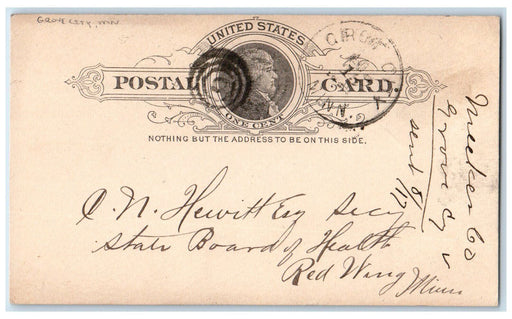 GROVE CITY, MN
UNITED STATES
POSTAL CARD.
ONE CENT
NOTHING BUT THE ADDRESS TO BE ON THIS SIDE.
C. N. Hewitt Esq Secy
State Board of Health
Red Wing
Minn
Meeker Co
Grove Cy
sent 8/17